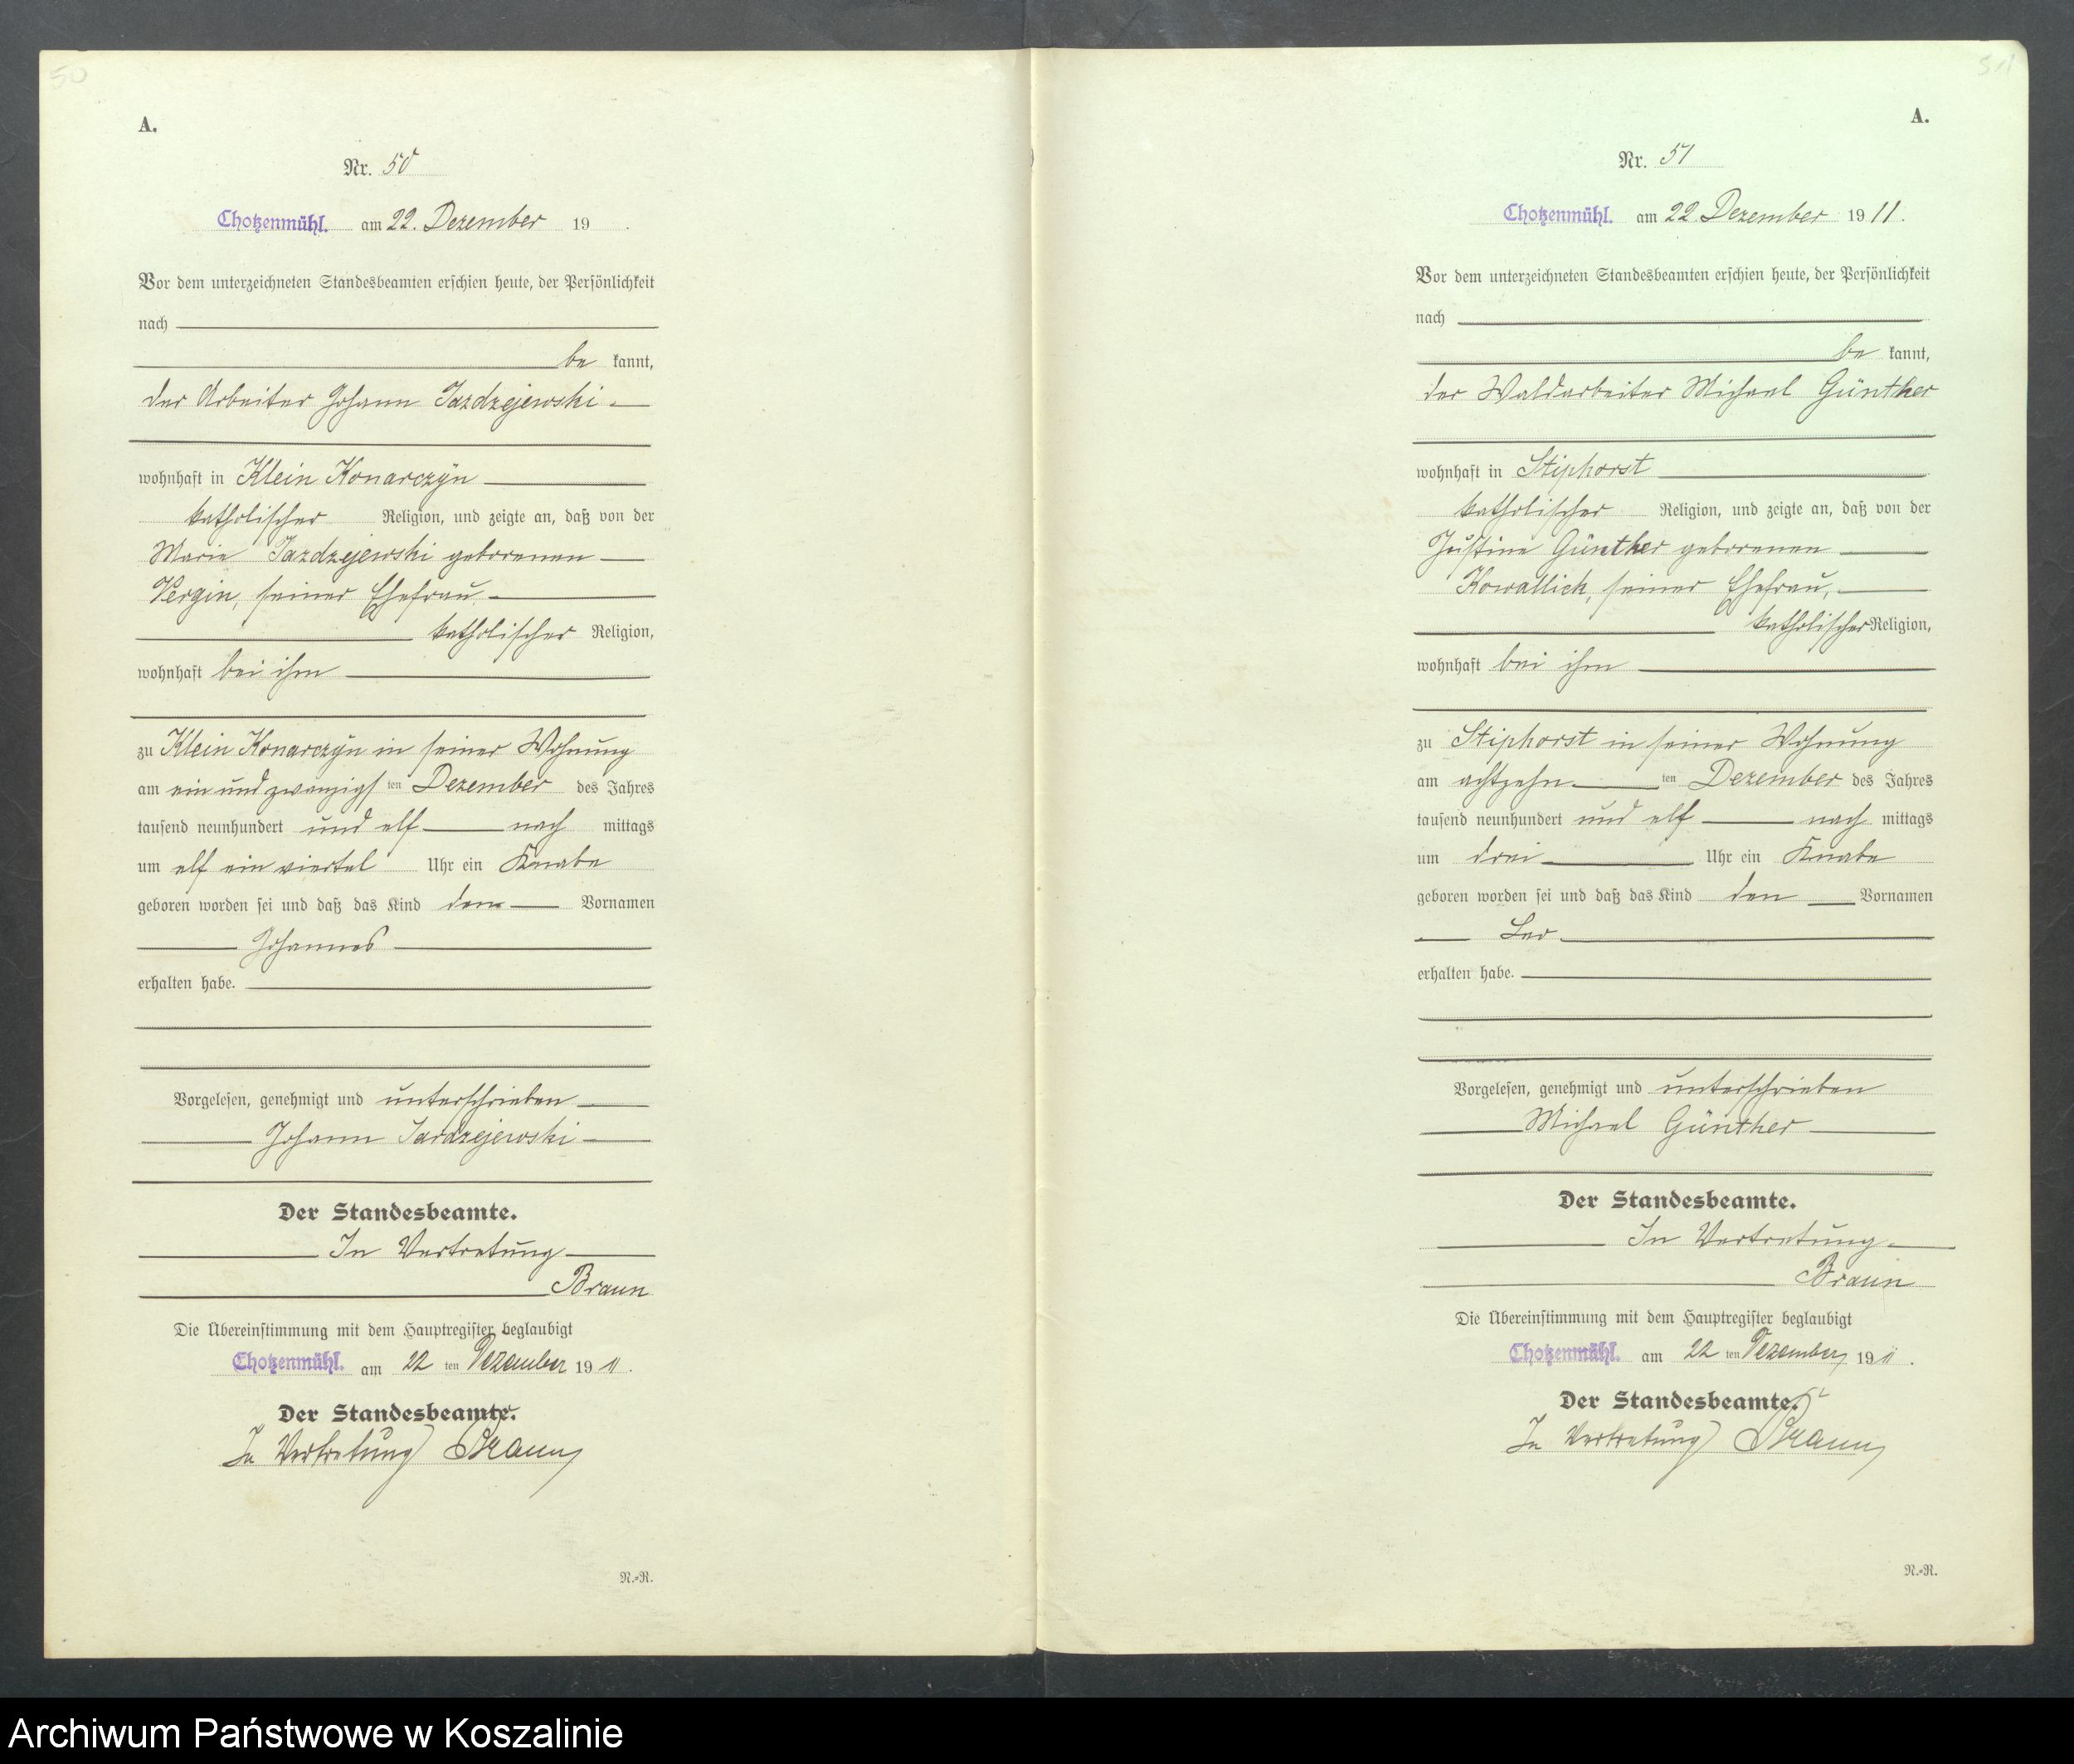 50
A.
Nr. 50
Chotzenmühl. am 22. Dezember 19 .
Vor dem unterzeichneten Standesbeamten erschien heute, der Persönlichkeit
nach
be kannt,
der Arbeiter Johann Jazdzejewski
wohnhaft in Klein Konarczyn
katholischer Religion, und zeigte an, daß von der
Marie Jazdzejewski geborenen
Vergin, seiner Ehefrau
katholischer Religion,
wohnhaft bei ihm
zu Klein Konarczyn in seiner Wohnung
am ein und zwanzigs ten Dezember des Jahres
tausend neunhundert und elf nach mittags
um elf ein viertel Uhr ein Knabe
geboren worden sei und daß das Kind den Vornamen
Johannes
erhalten habe.
Vorgelesen, genehmigt und unterschrieben
Johann Jardzejewski
Der Standesbeamte.
In Vertretung
Braun
Die Übereinstimmung mit dem Hauptregister beglaubigt
Chotzenmühl. am 22 ten Dezember 19 11.
Der Standesbeamte.
In Vertretung Braun
N.=R.
51
A.
Nr. 51
Chotzenmühl. am 22 Dezember 19 11.
Vor dem unterzeichneten Standesbeamten erschien heute, der Persönlichkeit
nach
be kannt,
der Waldarbeiter Michael Günther
wohnhaft in Stiphorst
katholischer Religion, und zeigte an, daß von der
Justine Günther geborenen
Kowallick, seiner Ehefrau,
katholischer Religion,
wohnhaft bei ihm
zu Stiphorst in seiner Wohnung
am achtzehn ten Dezember des Jahres
tausend neunhundert und elf nach mittags
um drei Uhr ein Knabe
geboren worden sei und daß das Kind den Vornamen
Leo
erhalten habe.
Vorgelesen, genehmigt und unterschrieben
Michael Günther
Der Standesbeamte.
In Vertretung
Braun
Die Übereinstimmung mit dem Hauptregister beglaubigt
Chotzenmühl. am 22 ten Dezember 19 11.
Der Standesbeamte.
In Vertretung Braun
N.=R.
Archiwum Państwowe w Koszalinie